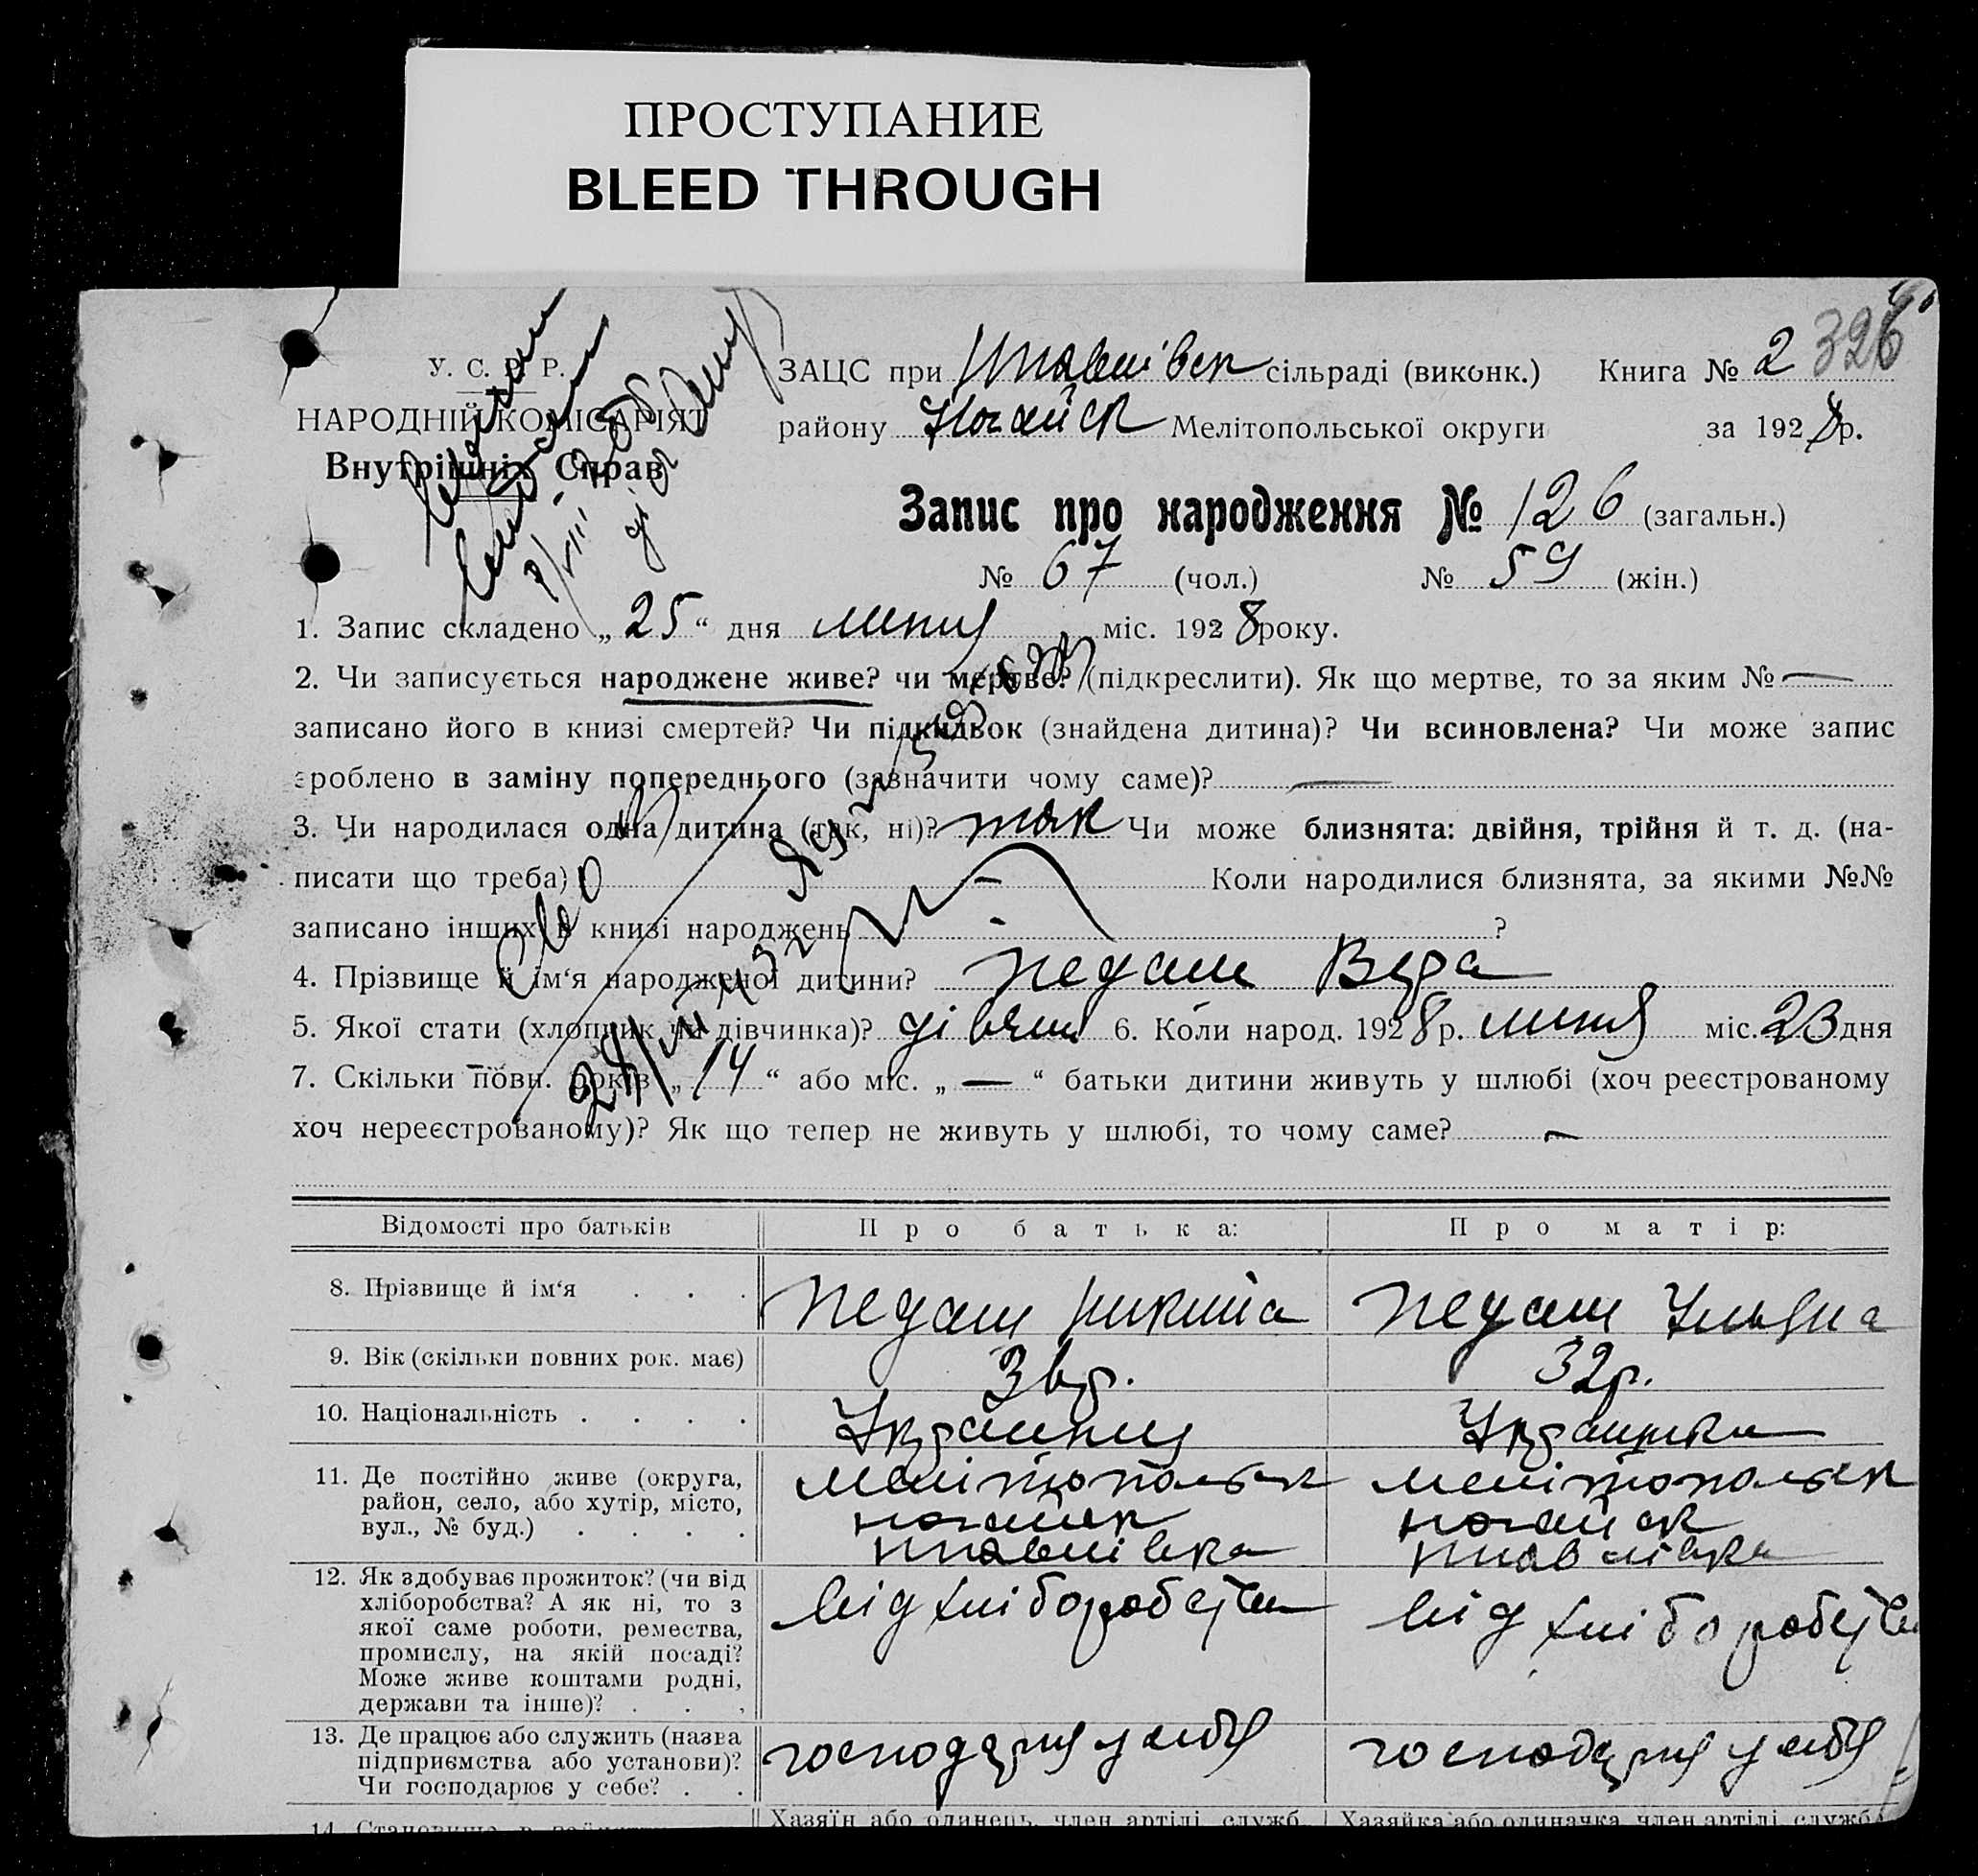 ПРОСТУПАНИЕ
BLEED THROUGH
326
У. С. Р. Р.
НАРОДНІЙ КОМІСАРІЯТ
Внутрішніх Справ
ЗАЦС при сільраді (виконк.) Книга № 2
району Ногайськ Мелітопольської округи за 1928р.
Запис про народження № 126 (загальн.)
№ 67 (чол.) № 59 (жін.)
1. Запис складено „25“ дня липня міс. 1928року.
2. Чи записується народжене живе? чи мертве? (підкреслити). Як що мертве, то за яким № —
записано його в книзі смертей? Чи підкидьок (знайдена дитина)? Чи всиновлена? Чи може запис
зроблено в заміну попереднього (зазначити чому саме)? —
3. Чи народилася одна дитина (так, ні)? так Чи може близнята: двійня, трійня й т. д. (на-
писати що треба) — Коли народилися близнята, за якими №№
записано інших в книзі народжень - ?
4. Прізвище й ім‘я народженої дитини? Педаш Вера
5. Якої стати (хлопчик чи дівчинка)? дівчин 6. Коли народ. 1928р. липня міс. 23 дня
7. Скільки повн. років „14“ або міс. „—“ батьки дитини живуть у шлюбі (хоч реєстрованому
хоч нереєстрованому)? Як що тепер не живуть у шлюбі, то чому саме? —
Відомості про батьків Про батька: Про матір:
8. Прізвище й ім‘я . . . Педаш Микита Педаш Ульяна
9. Вік (скільки повних рок. має) 36р. 32р.
10. Національність . . . . Українец Українка
11. Де постійно живе (округа,
район, село, або хутір, місто,
вул., № буд.) . . . .
Мелітопольськ
ногайськ
Мелітопольськ
ногайськ
12. Як здобуває прожиток? (чи від
хліборобства? А як ні, то з
якої саме роботи, ремества,
промислу, на якій посаді?
Може живе коштами родні,
держави та інше)? . . .
від хлібороберва
від хлібороберва
13. Де працює або служить (назва
підприємства або установи)?
Чи господарює у себе? . .
господарня у себя
господарня у себя
Хазяїн або одинець, член артілі, служб. Хазяйка або одиначка, член артілі, служб.